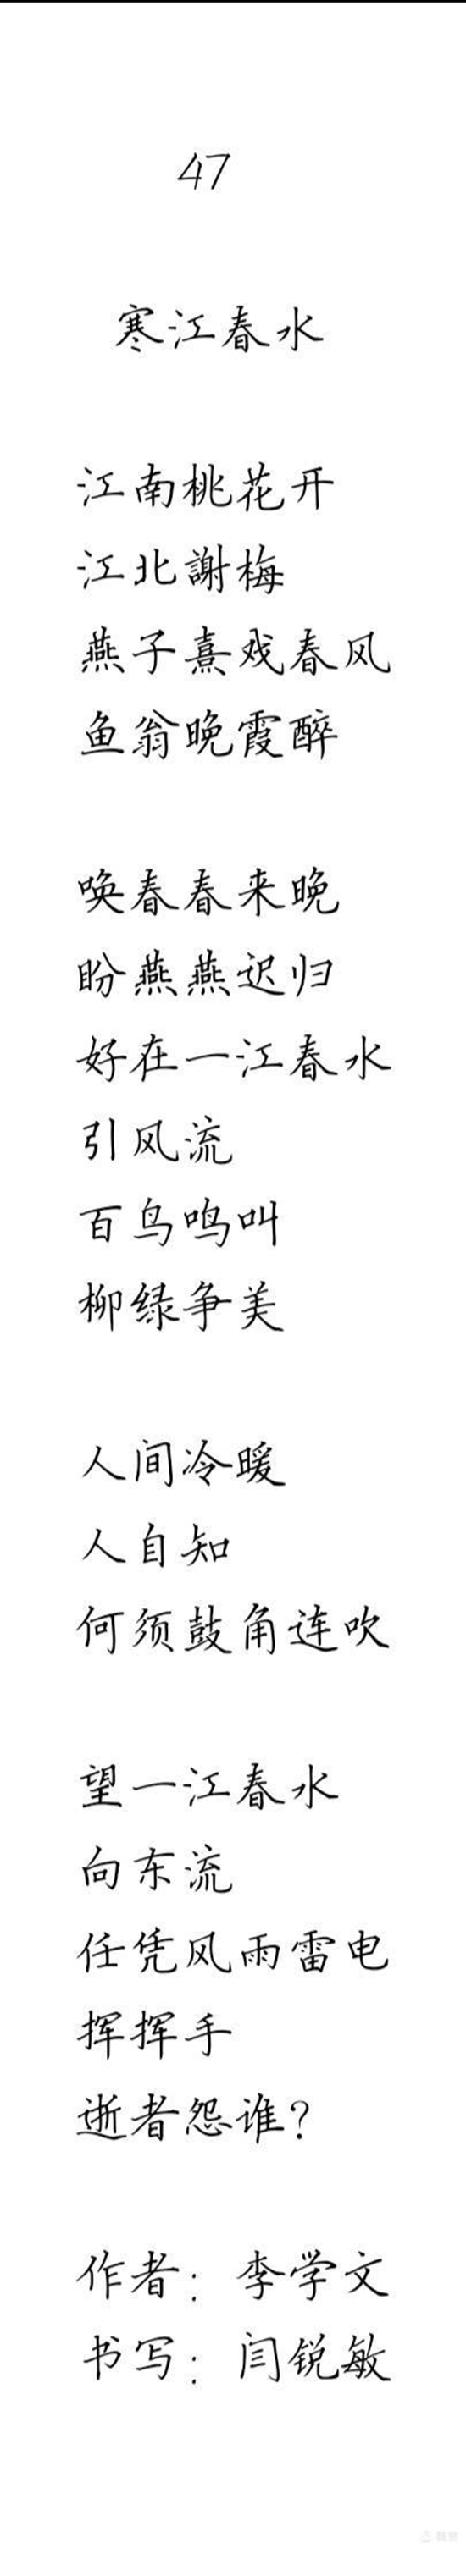 47
寒江春水
江南桃花开
江北謝梅
燕子熹戏春风
鱼翁晚霞醉
唤春春来晚
盼燕燕迟归
好在一江春水
引风流
百鸟鸣叫
柳绿争美
人间冷暖
人自知
何须鼓角连吹
望一江春水
向东流
任凭风雨雷电
挥挥手
逝者怨谁?
作者：李学文
书写：闫锐敏